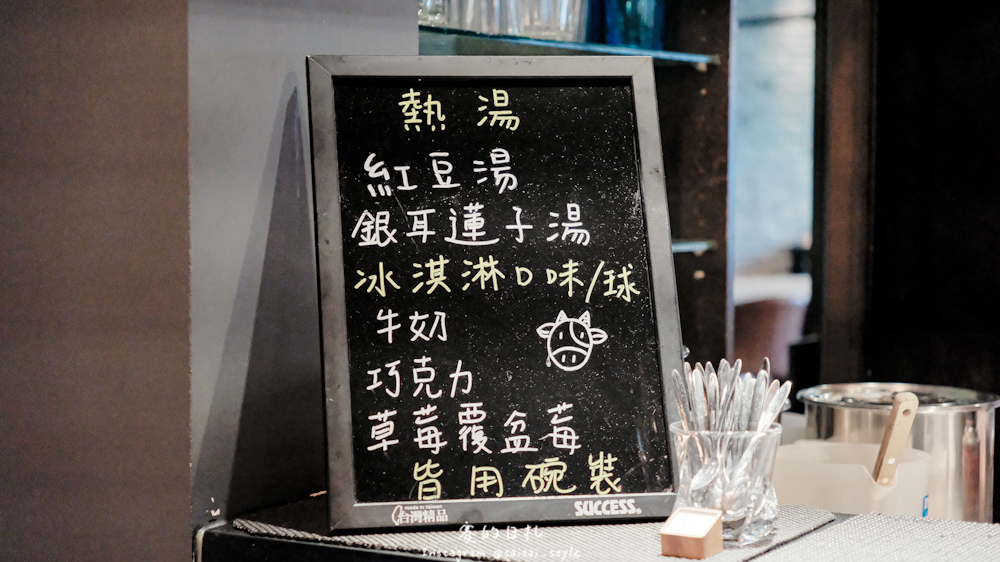 熱湯
紅豆湯
銀耳蓮子湯
冰淇淋口味/球
牛奶
巧克力
草莓覆盆莓
皆用碗裝
made in Taiwan
台灣精品
SUCCESS®
賽的日札
Instagram @saisai_style